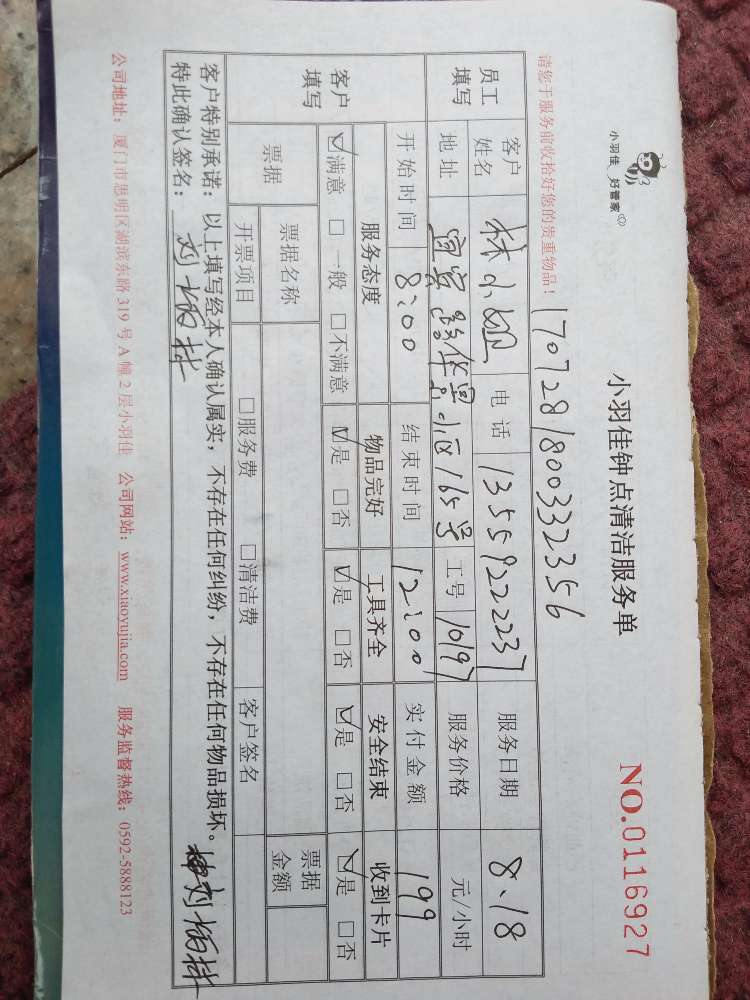 小羽佳 好管家
小羽佳钟点清洁服务单
NO.0116927
请您于服务前收拾好您的贵重物品!
1707281800332356
员工填写 客户姓名 林小姐 电话 13559222237 服务日期 8.18
地址 宜宾路华昌小区165号 工号 10197 服务价格 元/小时
客户填写 开始时间 8:00 结束时间 12:00 实付金额 199
服务态度 物品完好 工具齐全 安全结束 收到卡片
☑满意 □一般 □不满意 ☑是 □否 ☑是 □否 ☑是 □否 ☑是 □否
票据 票据名称 票据金额
开票项目 □服务费 □清洁费 客户签名
客户特别承诺:以上填写经本人确认属实,不存在任何纠纷,不存在任何物品损坏。
特此确认签名:
公司地址:厦门市思明区湖滨东路319号A幢2层小羽佳 公司网站:www.xiaoyujia.com 服务监督热线:0592-5888123